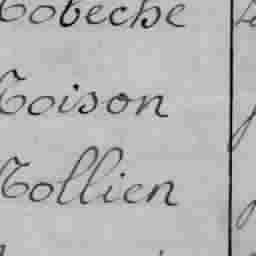 Tobeche
Toison
Tollien